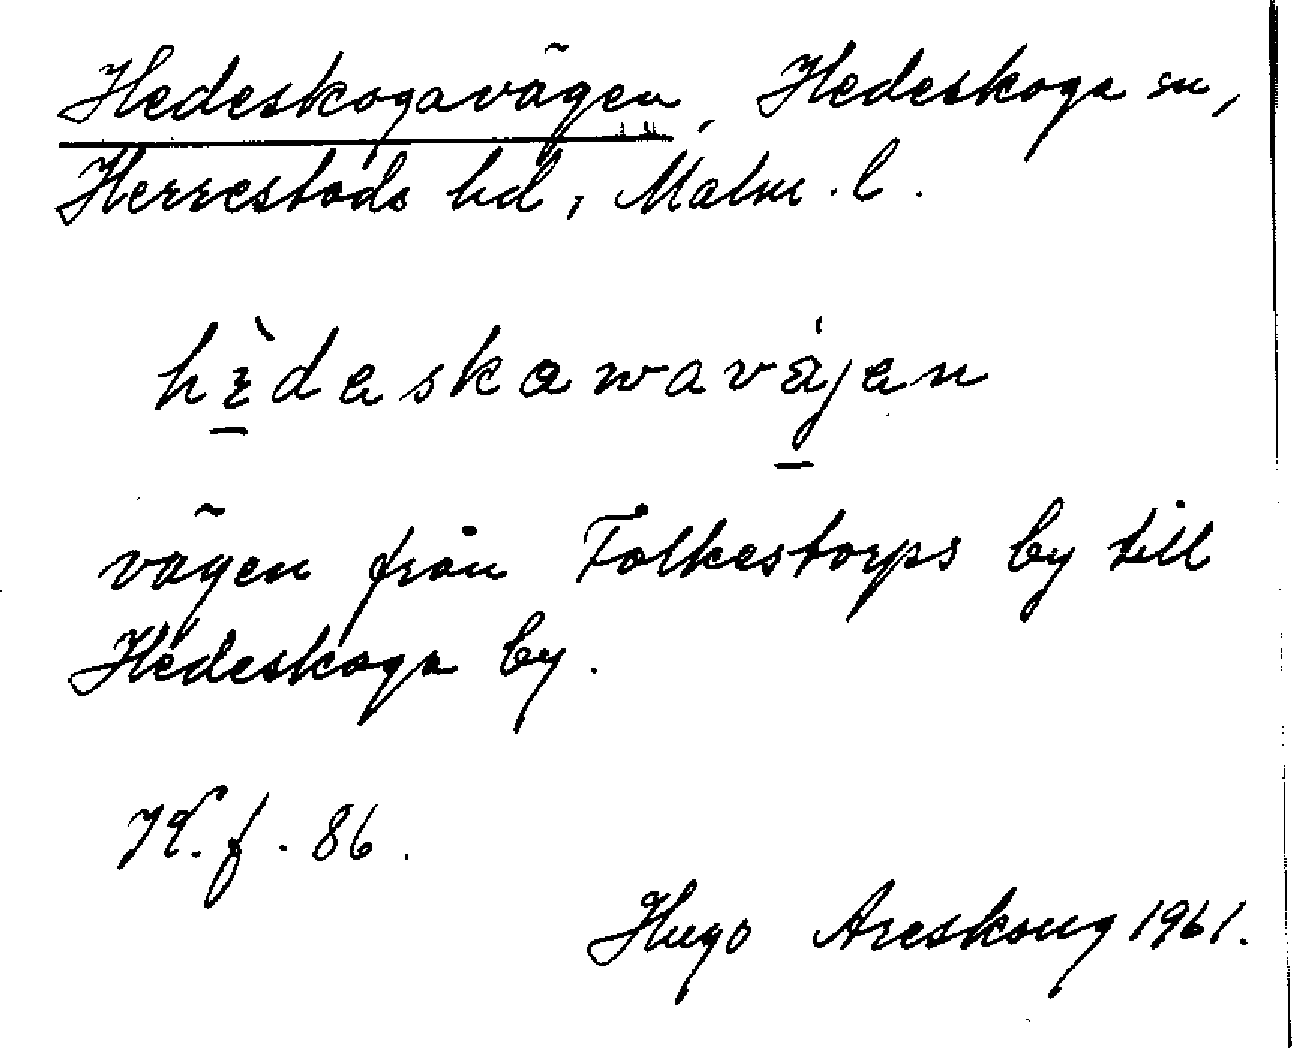 Hedeskogavägen, Hedeskoga sn,
Herrestads hd, Malm. l.
hèdeskawavájen
vägen från Folkestorps by till
Hedeskoga by.
K. f. 86.
Hugo Areskoug 1961.